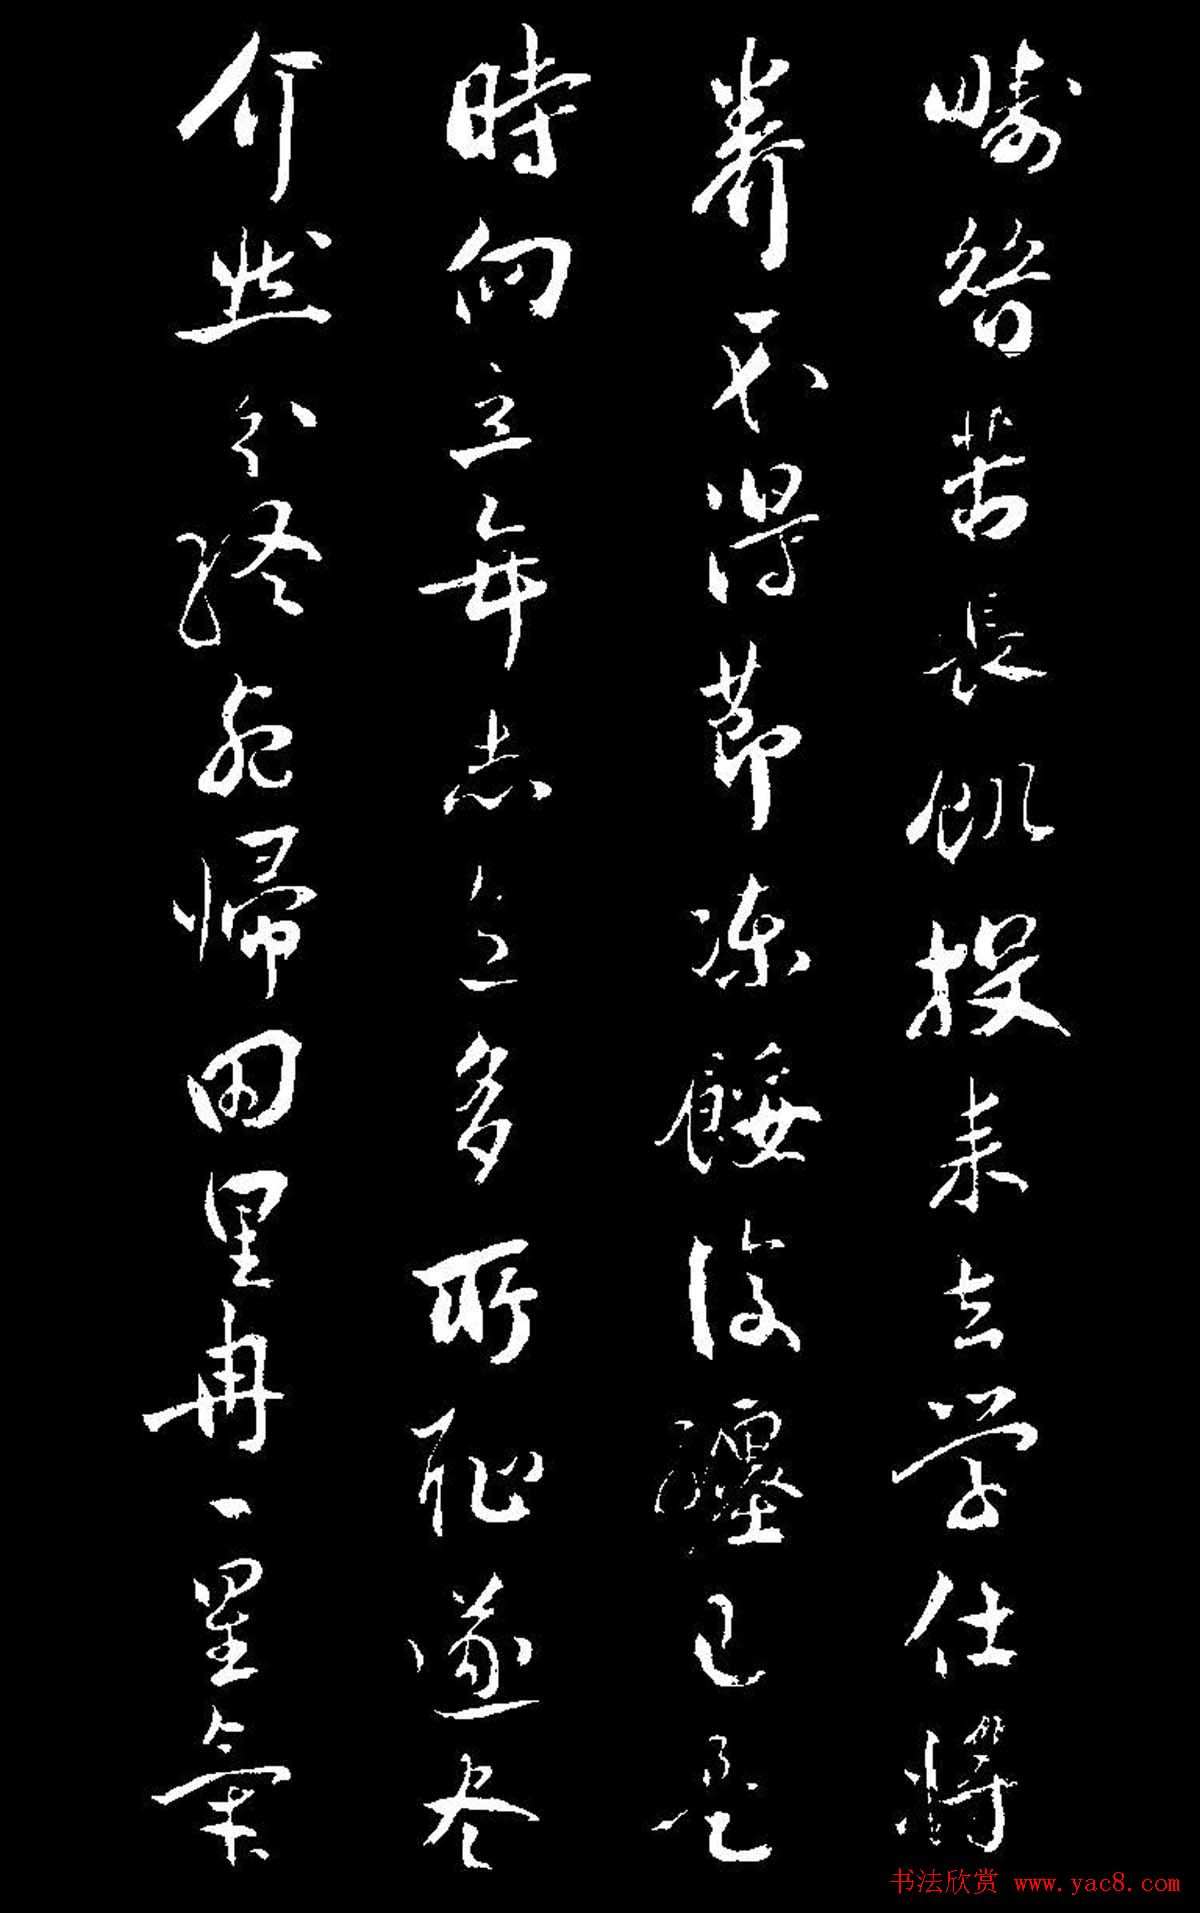 疇昔苦長飢投耒去学仕將
養不得節凍餒後纏己是
時向立年志意多所恥遂尽
介然分終死帰田里冉一星氣
书法欣赏 www.yac8.com